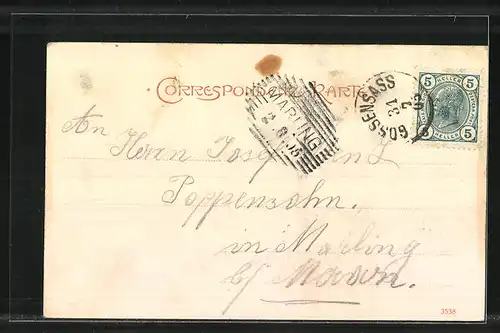 CORRESPONDENZ-KARTE
5 HELLER 5
5 HELLER 5
GOSSENSASS
31 7
MARLING
2. 8. 05
An Herrn Josef
Poppensohn.
in Marling
b/ Meran.
3538